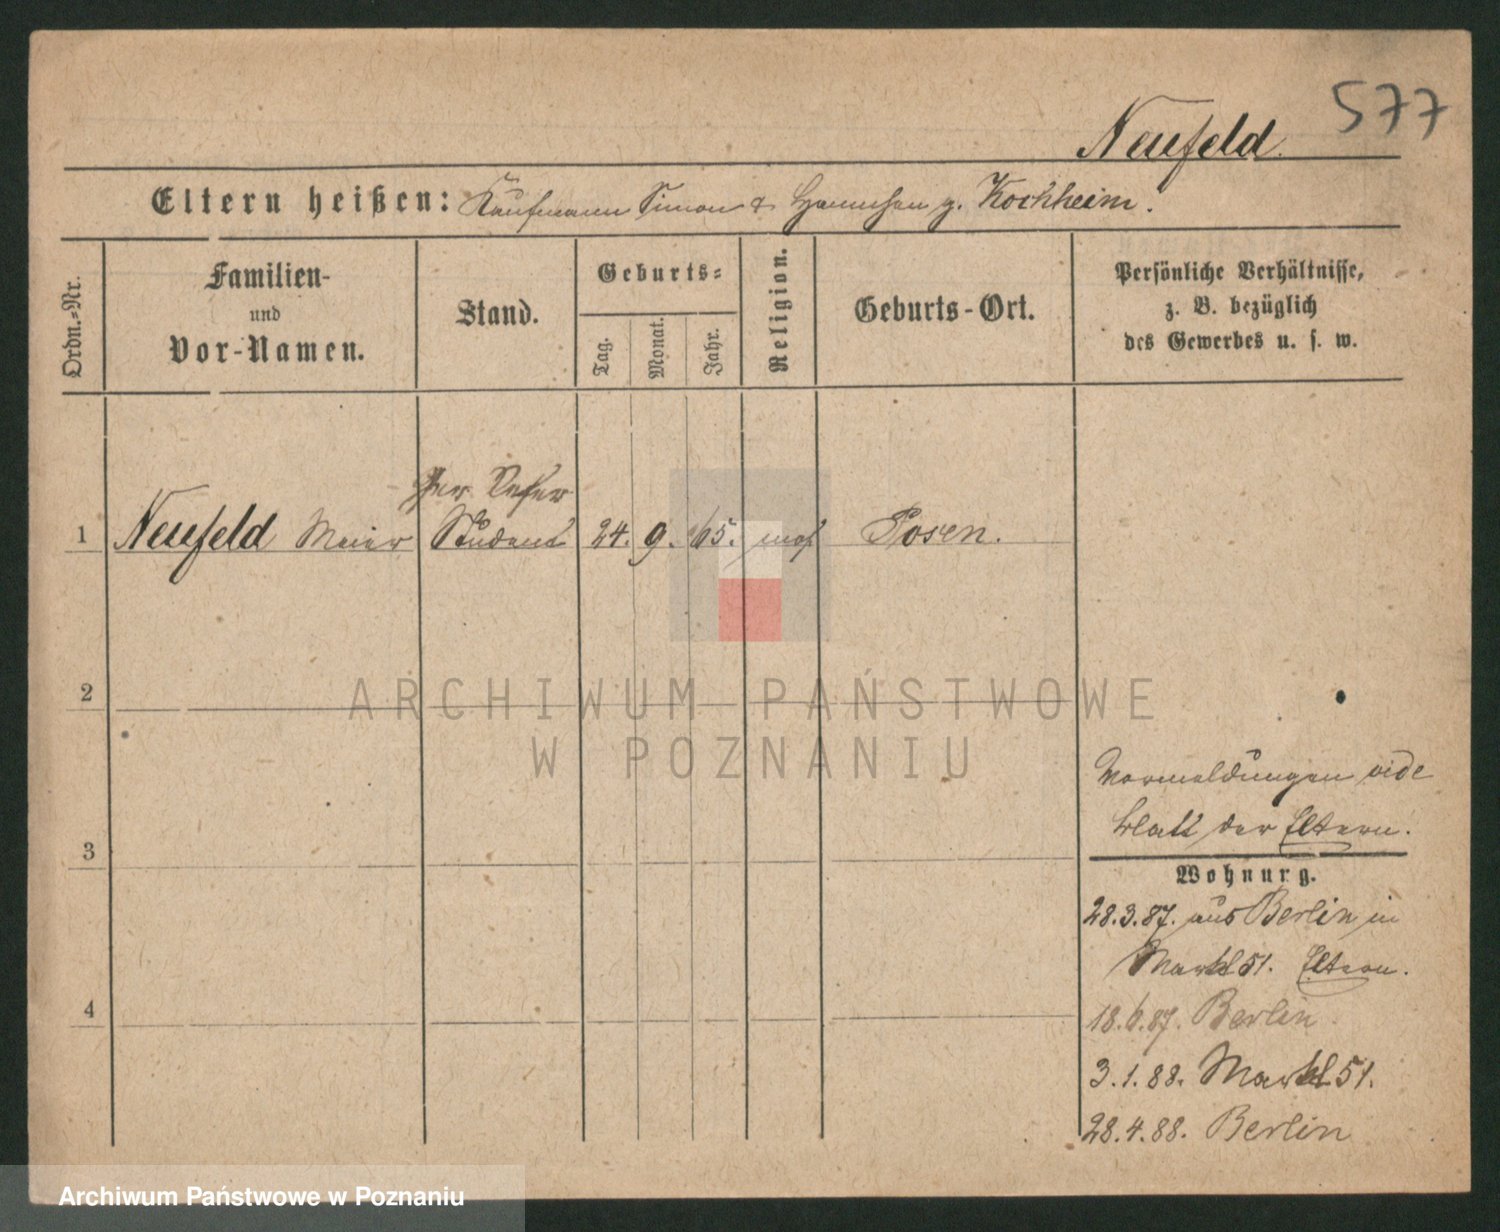 577
Neufeld
Eltern heißen: Kaufmann Simon & Hannchen g. Kochheim.
Ordn.=Nr.
Familien-
und
Vor-Namen.
Stand.
Geburts=
Tag.
Monat.
Jahr.
Religion.
Geburts-Ort.
Persönliche Verhältnisse,
z. B. bezüglich
des Gewerbes u. s. w.
1 Neufeld Meier Student 24. 9. 65. mos Posen.
2
3
4
Vormeldungen vide
blatt der Eltern.
Wohnung.
28.3.87. aus Berlin in
Markt 51. Eltern.
18.6.87. Berlin
3.1.88. Markt 51.
28.4.88. Berlin
ARCHIWUM PAŃSTWOWE
W POZNANIU
Archiwum Państwowe w Poznaniu